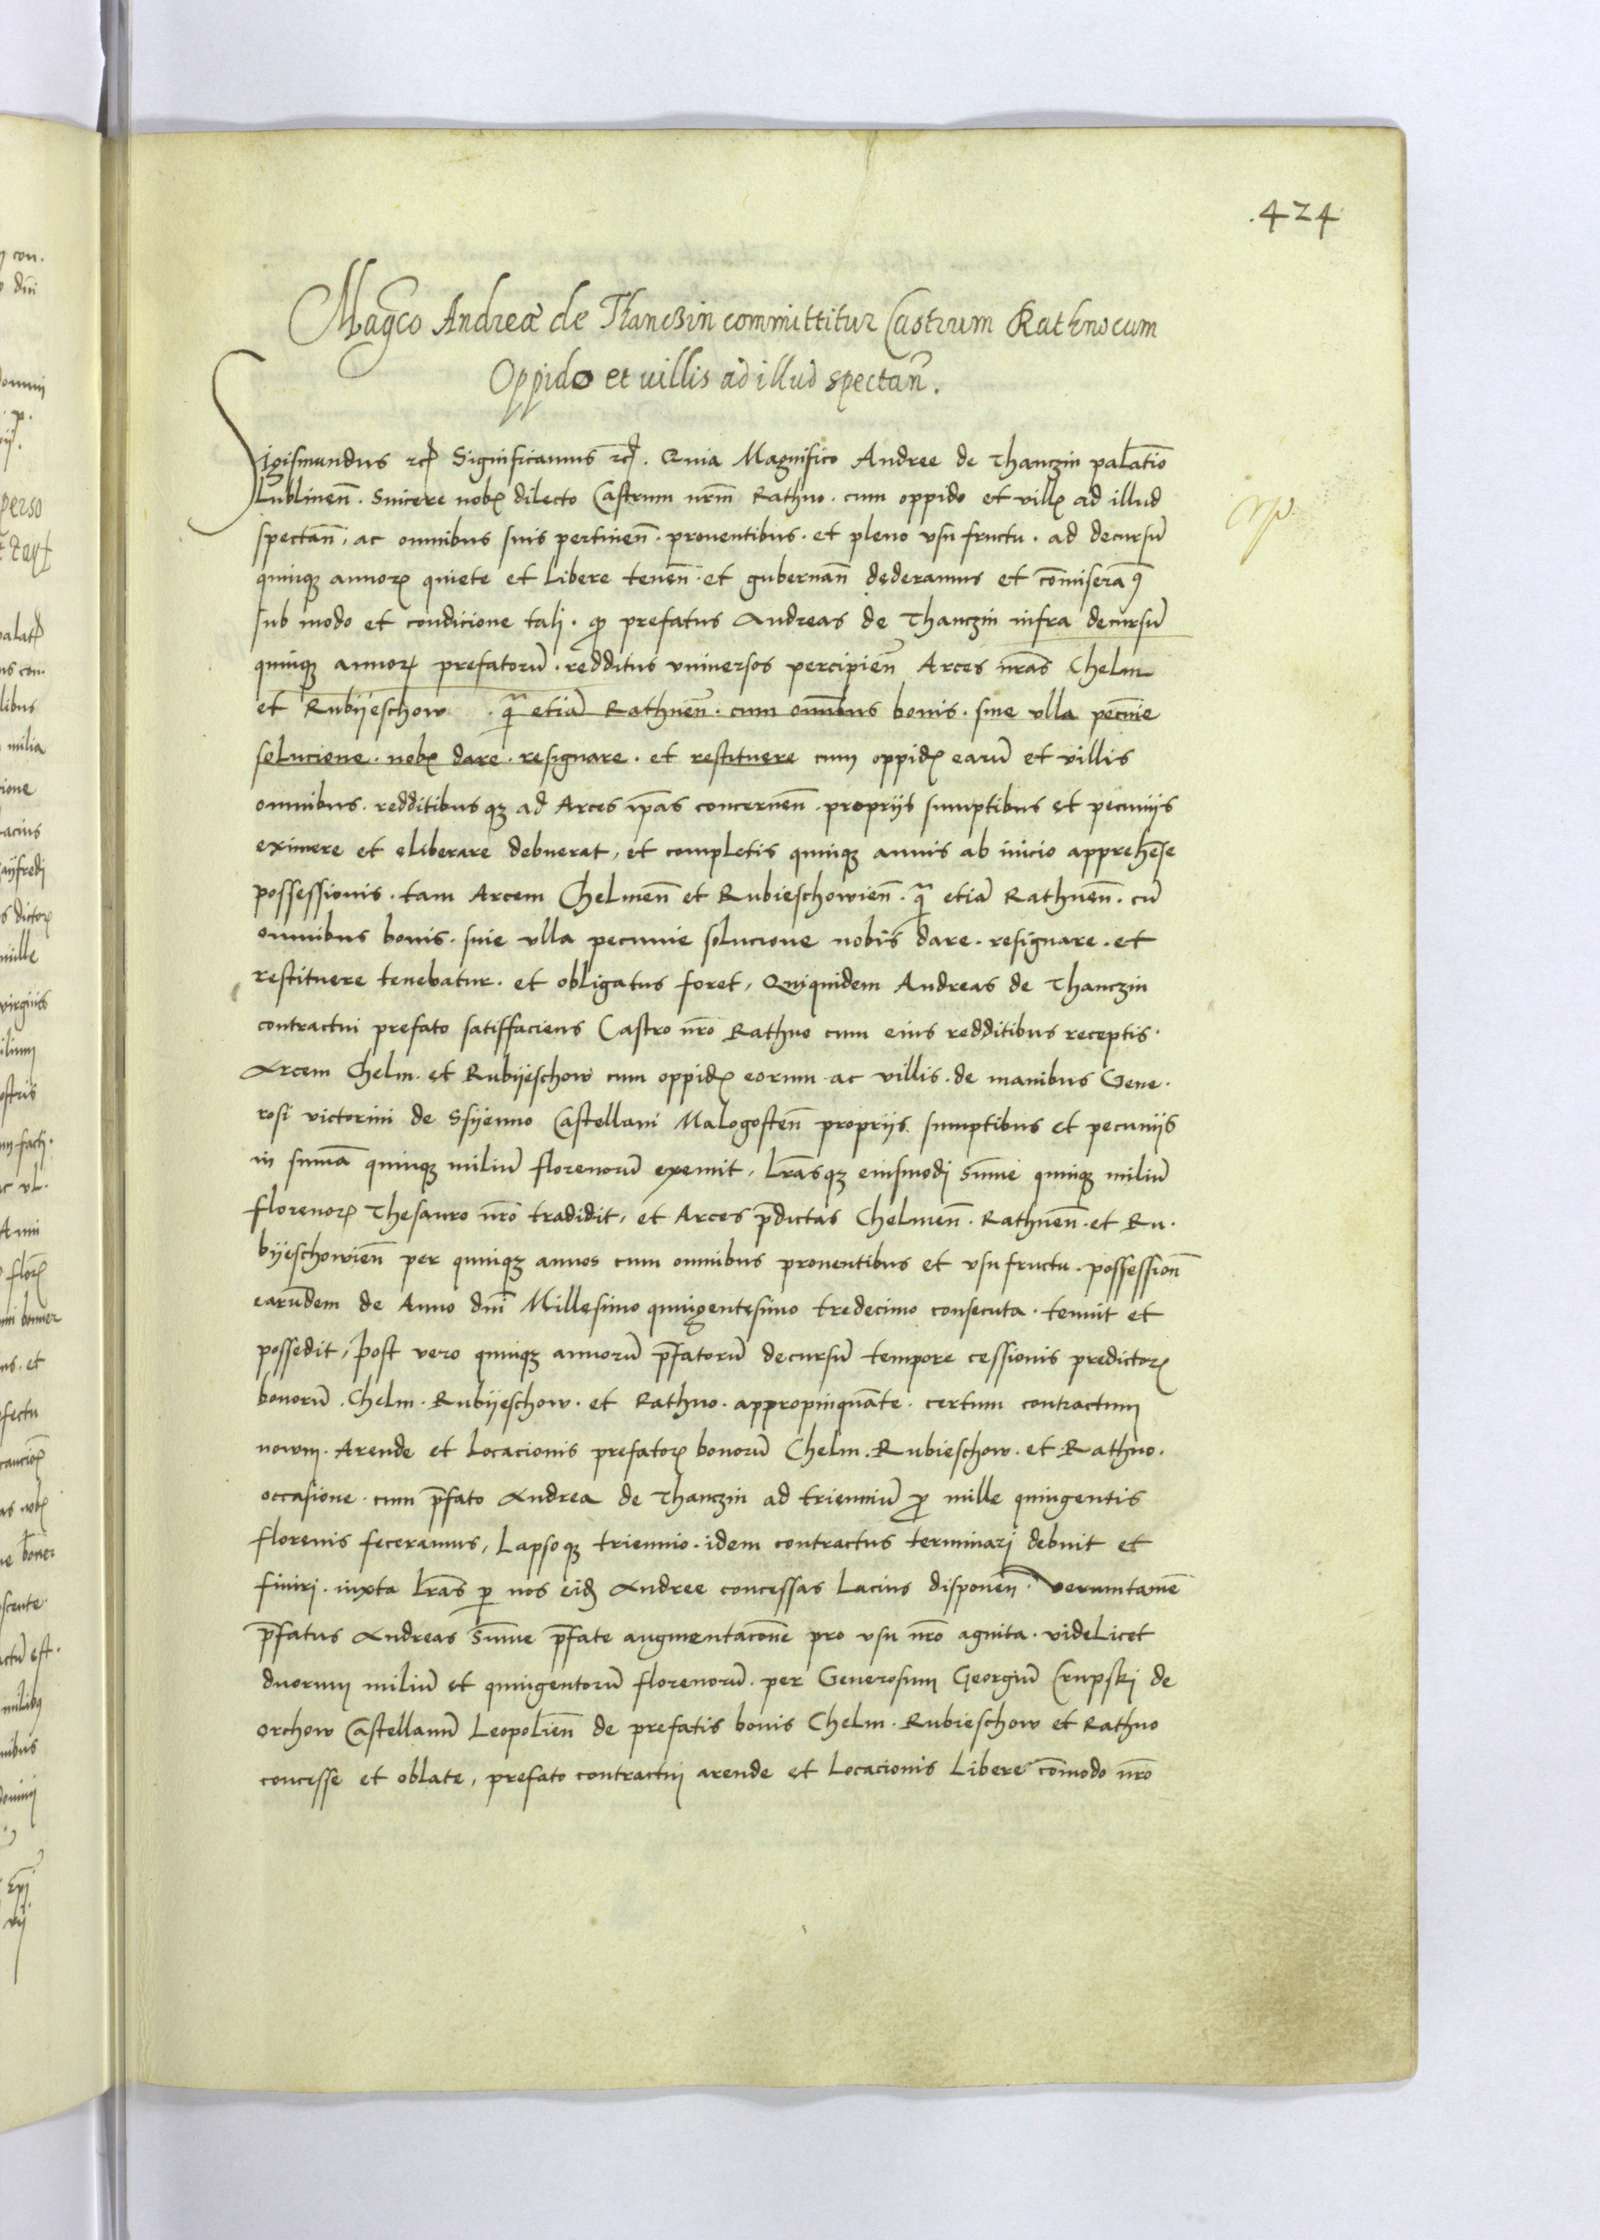 .424
Mag͞co Andreæ de Thanczin committitur Castrum Rathno cum
Oppido et uillis ad illud spectañ.
Sigismundus rcꝭ Significamus rcꝭ. Quia Magnifico Andree de Thanczin palatio͞
Lublinen͞. Sincere nobꝭ dilecto Castrum nrm͞ Rathno. cum oppido et villꝭ ad illud
spectan͞, ac omnibus suis pertinen͞. prouentibus. et pleno vsu fructu. ad decursu͞
quinqꝫ annorꝭ quiete et Libere tenen͞. et gubernan͞ dederamus et co͞misera͞ꝯ
sub modo et condicione tali. ꝙ prefatus Andreas de Thanczin infra decursu͞
quinqꝫ annorꝭ prefatoru͞. redditus vniuersos percipien͞ Arces nra͞s Chelm
et Rubijeschow. qͣ etia͞ Rathnen͞. cum omnibus bonis. sine vlla pecu͞nie
solucione. nobꝭ dare. resignare. et restituere cum oppidꝭ earu͞ et villis
omnibus. redditibusqꝫ ad Arces ip͞as concernen͞. proprijs sumptibus et pecunijs
eximere et eliberare debuerat, et completis quinqꝫ annis ab inicio apprehen͞se
possessionis. tam Arcem Chelmen͞ et Rubieschowien͞. qͣ etia͞ Rathnen͞. cu͞
omnibus bonis. sine vlla pecunie solucione nobis dare. resignare. et
restituere tenebatur. et obligatus foret, Quiquidem Andreas de Thanczin
contractui prefato satisffaciens Castro nro͞ Rathno cum eius redditibus receptis.
Arcem Chelm. et Rubijeschow cum oppidꝭ eorum ac villis. de manibus Gene.
rosi victorini de Ssijenno Castellani Malogosten͞ proprijs. sumptibus et pecunijs
in suma͞ quinqꝫ miliu͞ florenoru͞ exemit, Lra͞sqꝫ eiusmodi sum͞e quinqꝫ miliu͞
florenorꝭ Thesauro nro͞ tradidit, et Arces p͞dictas Chelmen͞. Rathnen͞. et Ru.
bijeschowien͞ per quinqꝫ annos cum omnibus prouentibus et vsufructu. possession͞
earu͞dem de Anno dni͞ Millesimo quingentesimo tredecimo consecuta. tenuit et
possedit, Post vero quinqꝫ annoru͞ p͞fatoru͞ decursu͞ tempore cessionis predictorꝭ
bonoru͞. Chelm. Rubijeschow. et Rathno. appropinqua͞te. certum contractum
nowm. Arende et Locacionis prefatorꝭ bonoru͞ Chelm. Rubieschow. et Rathno.
occasione. cum p͞fato Andrea de Thanczin ad trienniu͞ ꝓ mille quingentis
florenis feceramus, Lapsoqꝫ triennio. idem contractus terminari debuit et
finiri. iuxta Lra͞s ꝑ nos eid͞ Andree concessas Lacius disponen͞. verumtame͞
p͞fatus Andreas sum͞e p͞fate augmentacone͞ pro vsu nro͞ agnita. videlicet
duorum miliu͞ et quingentoru͞ florenoru͞. per Generosum Georgiu͞ Crupski de
orchow Castellanu͞ Leopolien͞ de prefatis bonis Chelm. Rubieschow et Rathno
concesse et oblate, prefato contractui arende et Locacionis Libere co͞modo nro͞